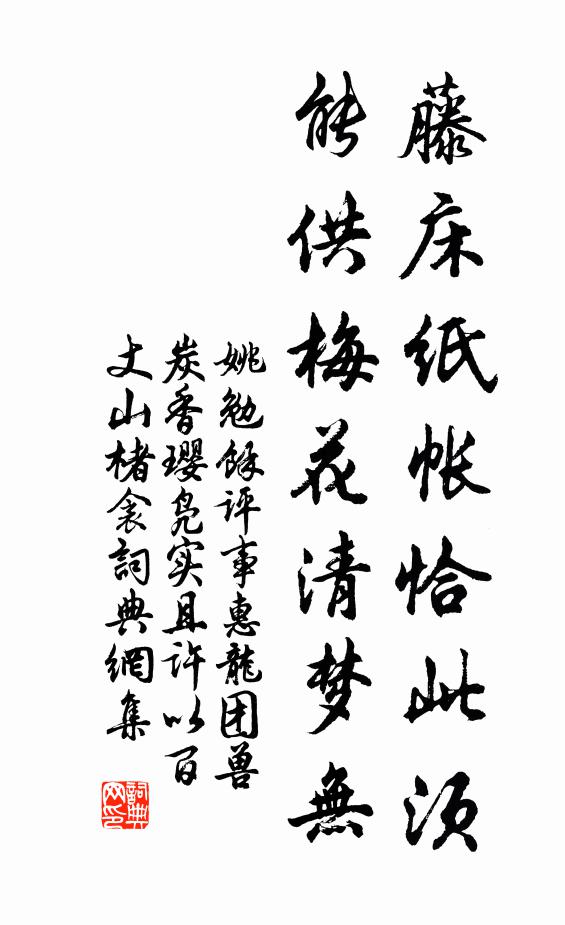 藤床纸帐恰此须
能供梅花清梦無
姚勉馀评事惠龍团兽
炭香璎凫实且许以百
丈山楮衾詞典網集
詞典网印